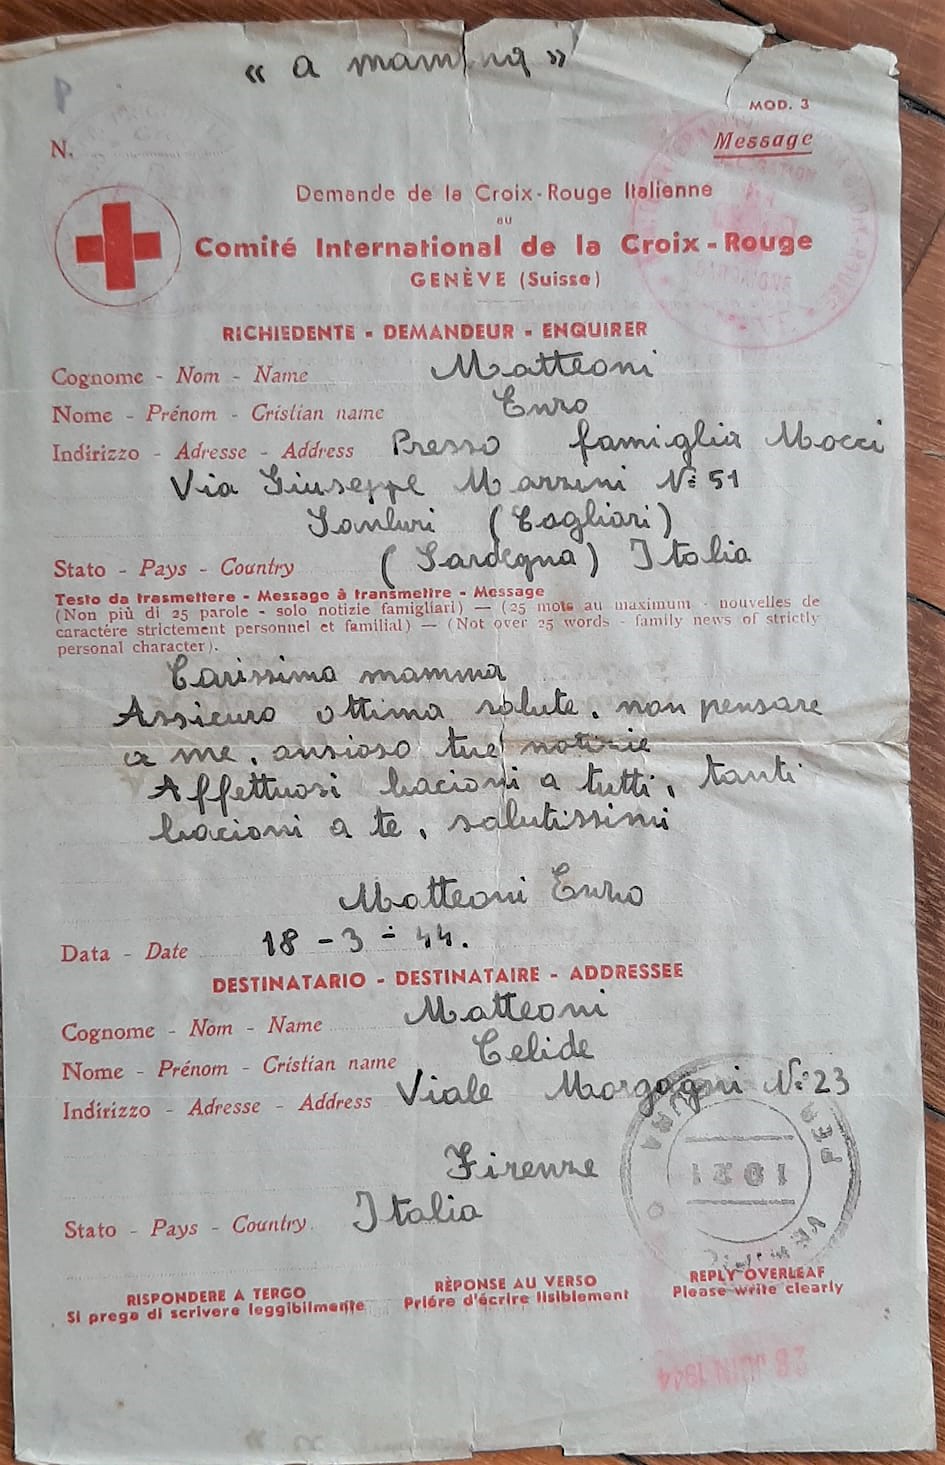 « a mamma »
MOD. 3
N.
Message
Demande de la Croix-Rouge Italienne
au
Comité International de la Croix-Rouge
GENÈVE (Suisse)
RICHIEDENTE - DEMANDEUR - ENQUIRER
Cognome - Nom - Name Matteoni
Nome - Prénom - Cristian name Enzo
Indirizzo - Adresse - Address Presso famiglia Mocci
Via Giuseppe Mazzini N: 51
Sanluri (Cagliari)
Stato - Pays - Country (Sardegna) Italia
Testo da trasmettere - Message à transmettre - Message
(Non più di 25 parole - solo notizie famigliari) — (25 mots au maximum - nouvelles de
caractére strictement personnel et familial) — (Not over 25 words - family news of strictly
personal character).
Carissima mamma
Assicuro ottima salute, non pensare
a me, ansioso tue notizie
Affettuosi bacioni a tutti, tanti
bacioni a te, salutissimi
Matteoni Enzo
Data - Date 18-3-44.
DESTINATARIO - DESTINATAIRE - ADDRESSEE
Cognome - Nom - Name Matteoni
Nome - Prénom - Cristian name Celide
Indirizzo - Adresse - Address Viale Morgagni N: 23
Firenze
Stato - Pays - Country Italia
RISPONDERE A TERGO
Si prega di scrivere leggibilmente
RÈPONSE AU VERSO
Priére d'écrire lisiblement
REPLY OVERLEAF
Please write clearly
28 JUIN 1944